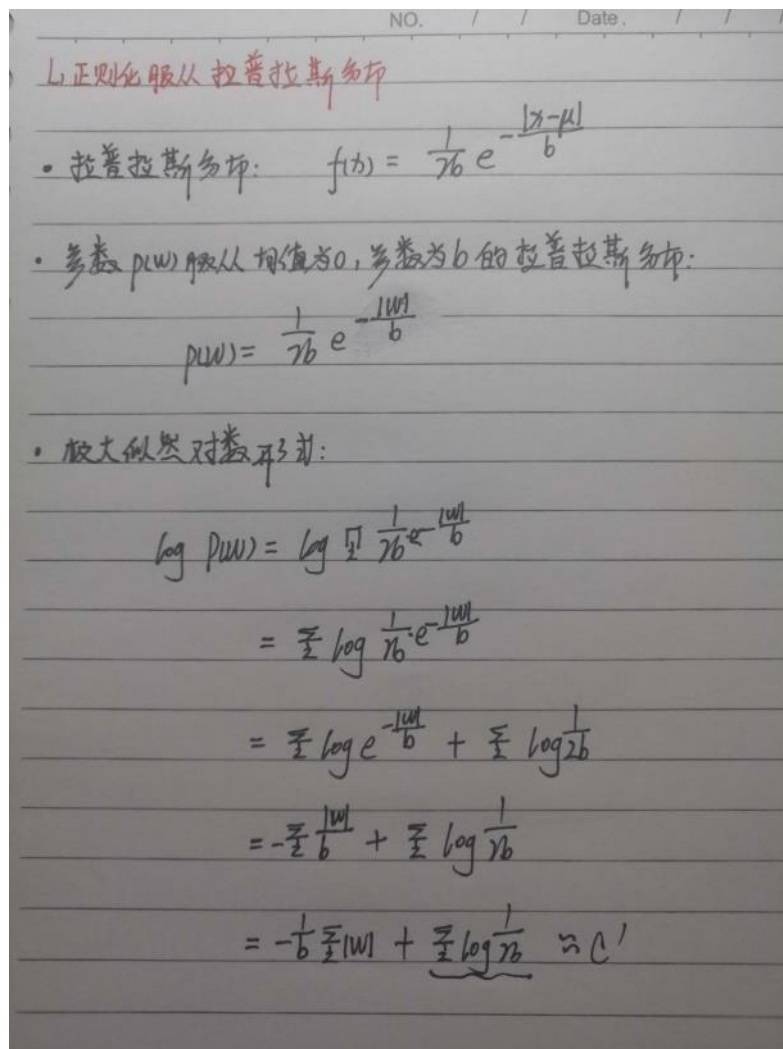 NO. / / Date. / / /
L1正则化服从拉普拉斯分布
• 拉普拉斯分布: f(x) = 1/2b e^{-|x-μ|/b}
• 参数p(w)服从均值为0,参数为b的拉普拉斯分布:
p(w) = 1/2b e^{-|w|/b}
• 极大似然对数形式:
log p(w) = log ∏_i 1/2b·e^{-|w|/b}
= Σ_i log 1/2b·e^{-|w|/b}
= Σ_i log e^{-|w|/b} + Σ_i log 1/2b
= -Σ_i |w|/b + Σ_i log 1/2b
= -1/b Σ_i |w| + Σ_i log 1/2b ≈ C'